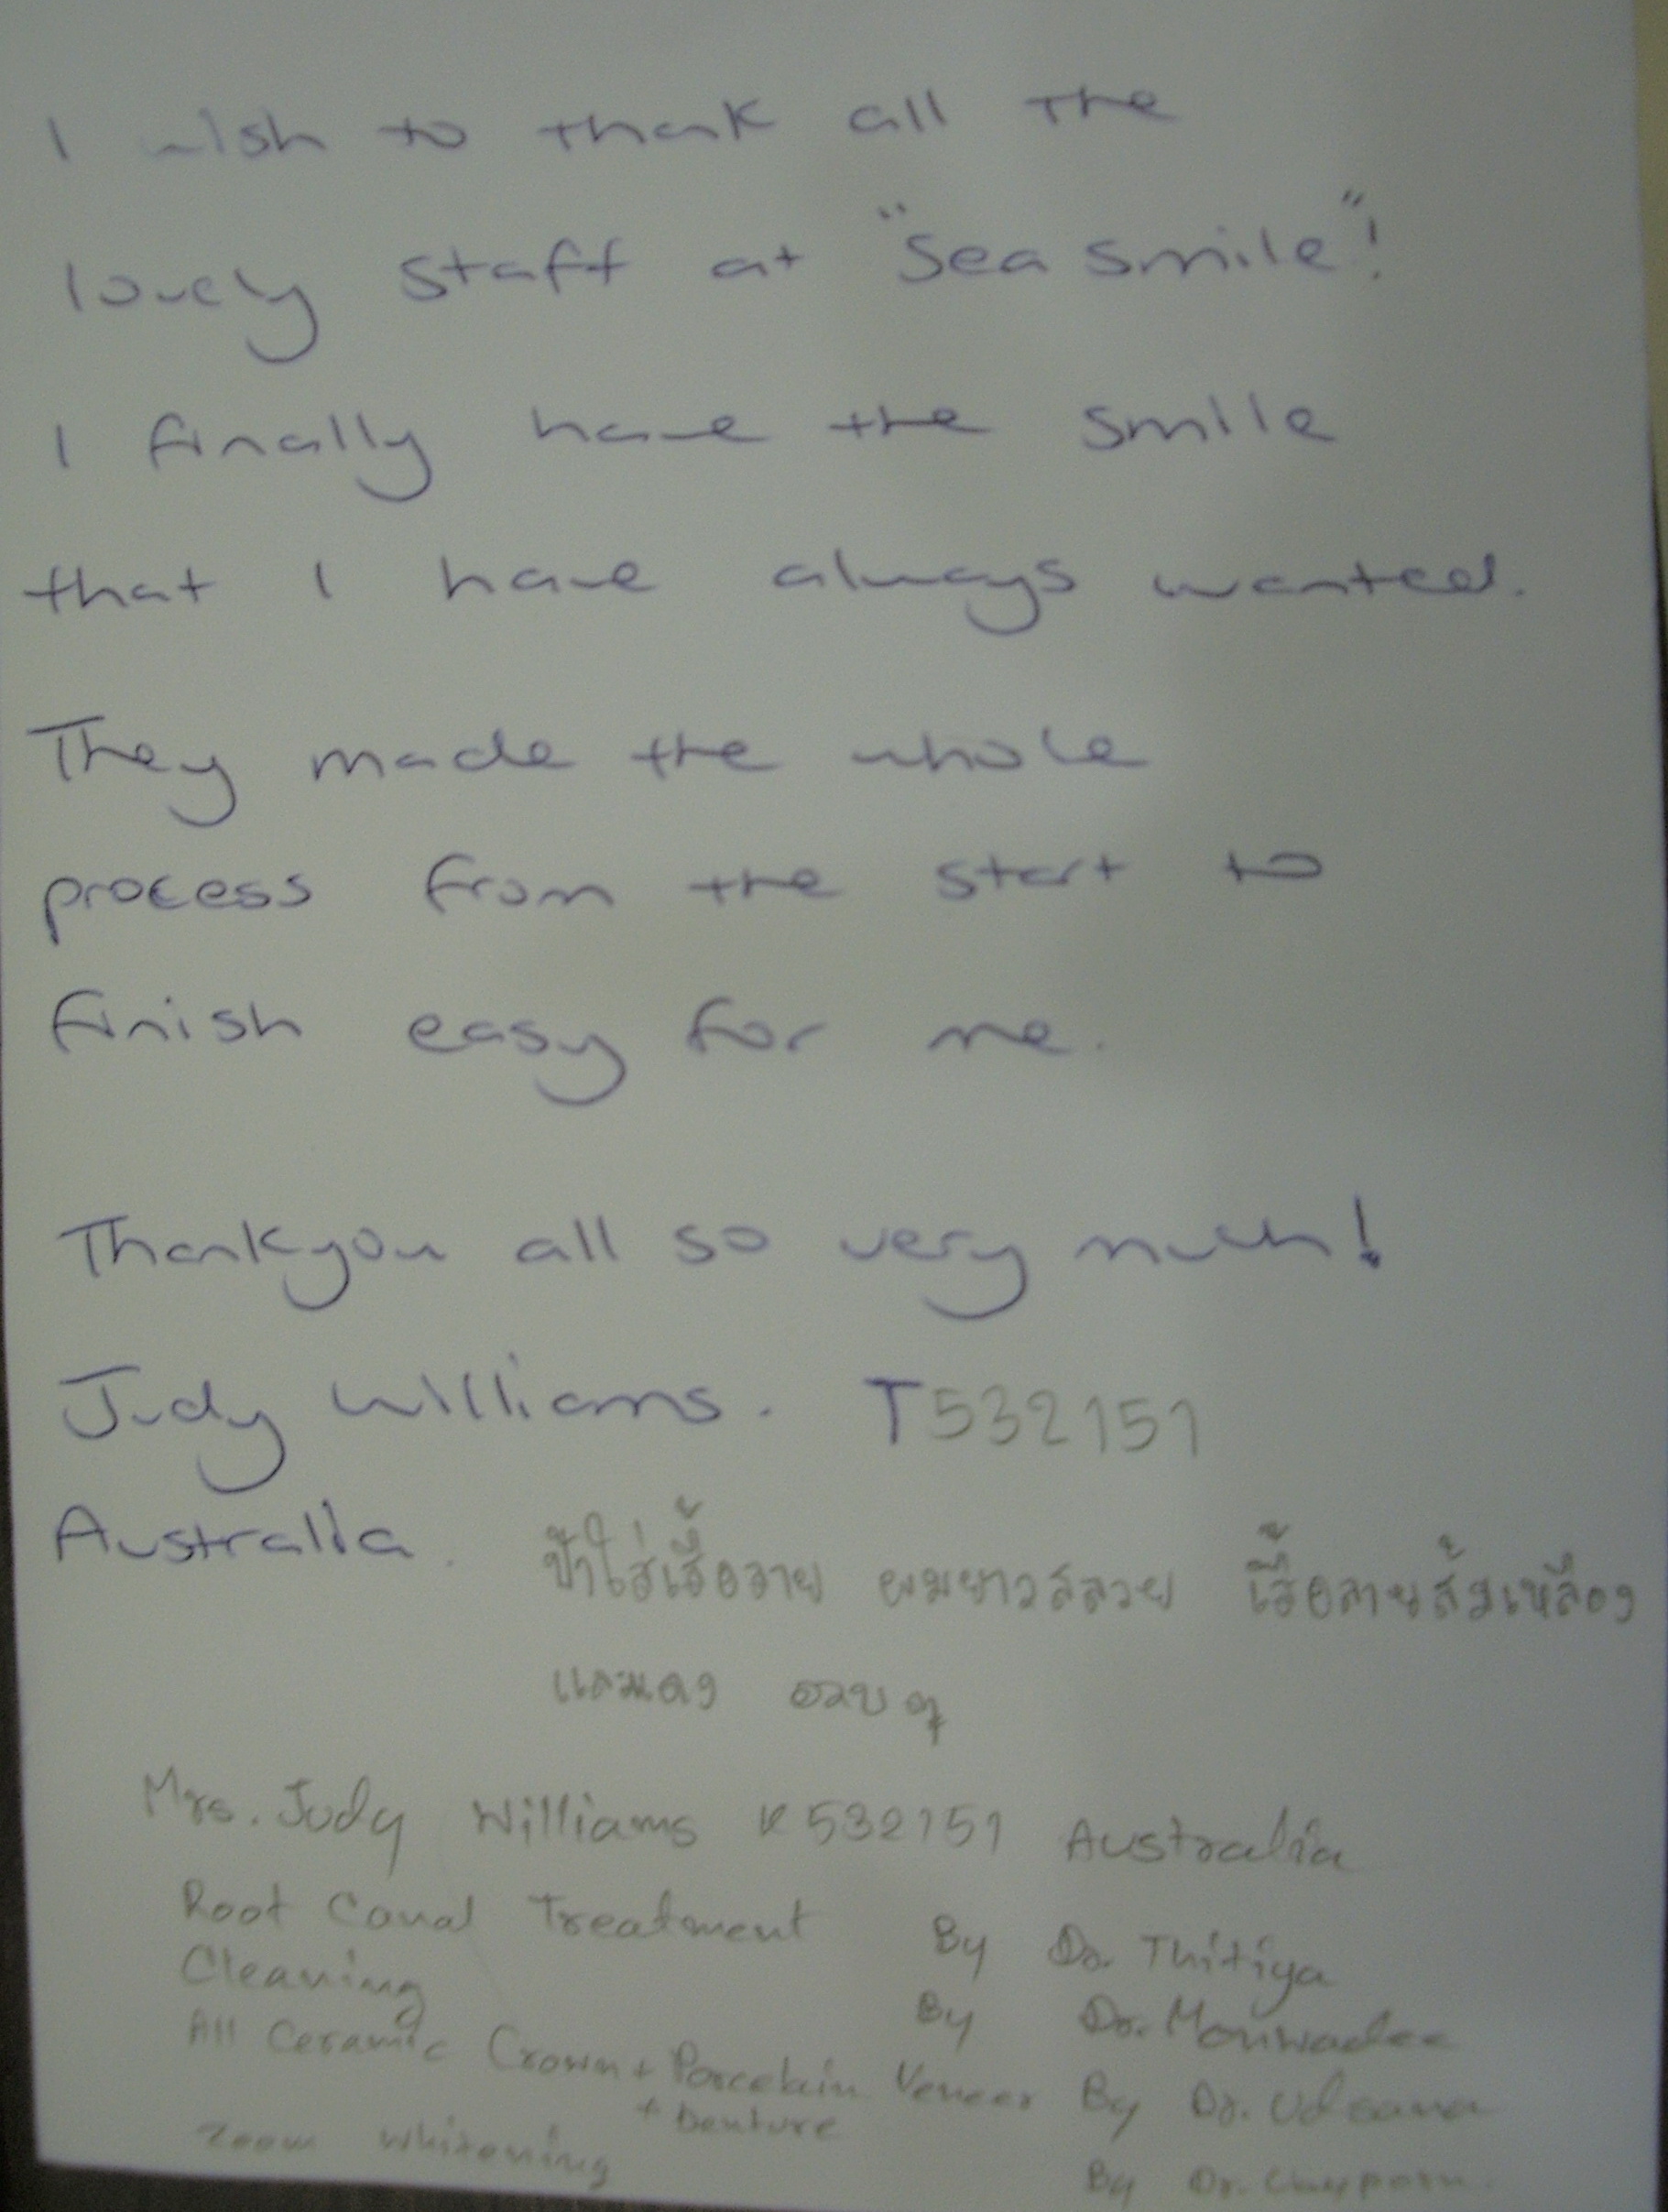 I wish to thank all the
lovely staff at "Sea smile"!
I finally have the smile
that I have always wanted.
They made the whole
process from the start to
finish easy for me.
Thankyou all so very much!
Judy Williams. T532151
Australia. ป้าใส่เสื้อลาย ผมยาวสลวย เสื้อลายส้มเหลือง
และแดง อวบๆ
Mrs. Judy Williams K532151 Australia
Root Canal Treatment By Dr. Thitiya
Cleaning By Dr. Monwadee
All Ceramic Crown + Porcelain Veneer By Dr.
+ Denture
Zoom Whitening By Dr.